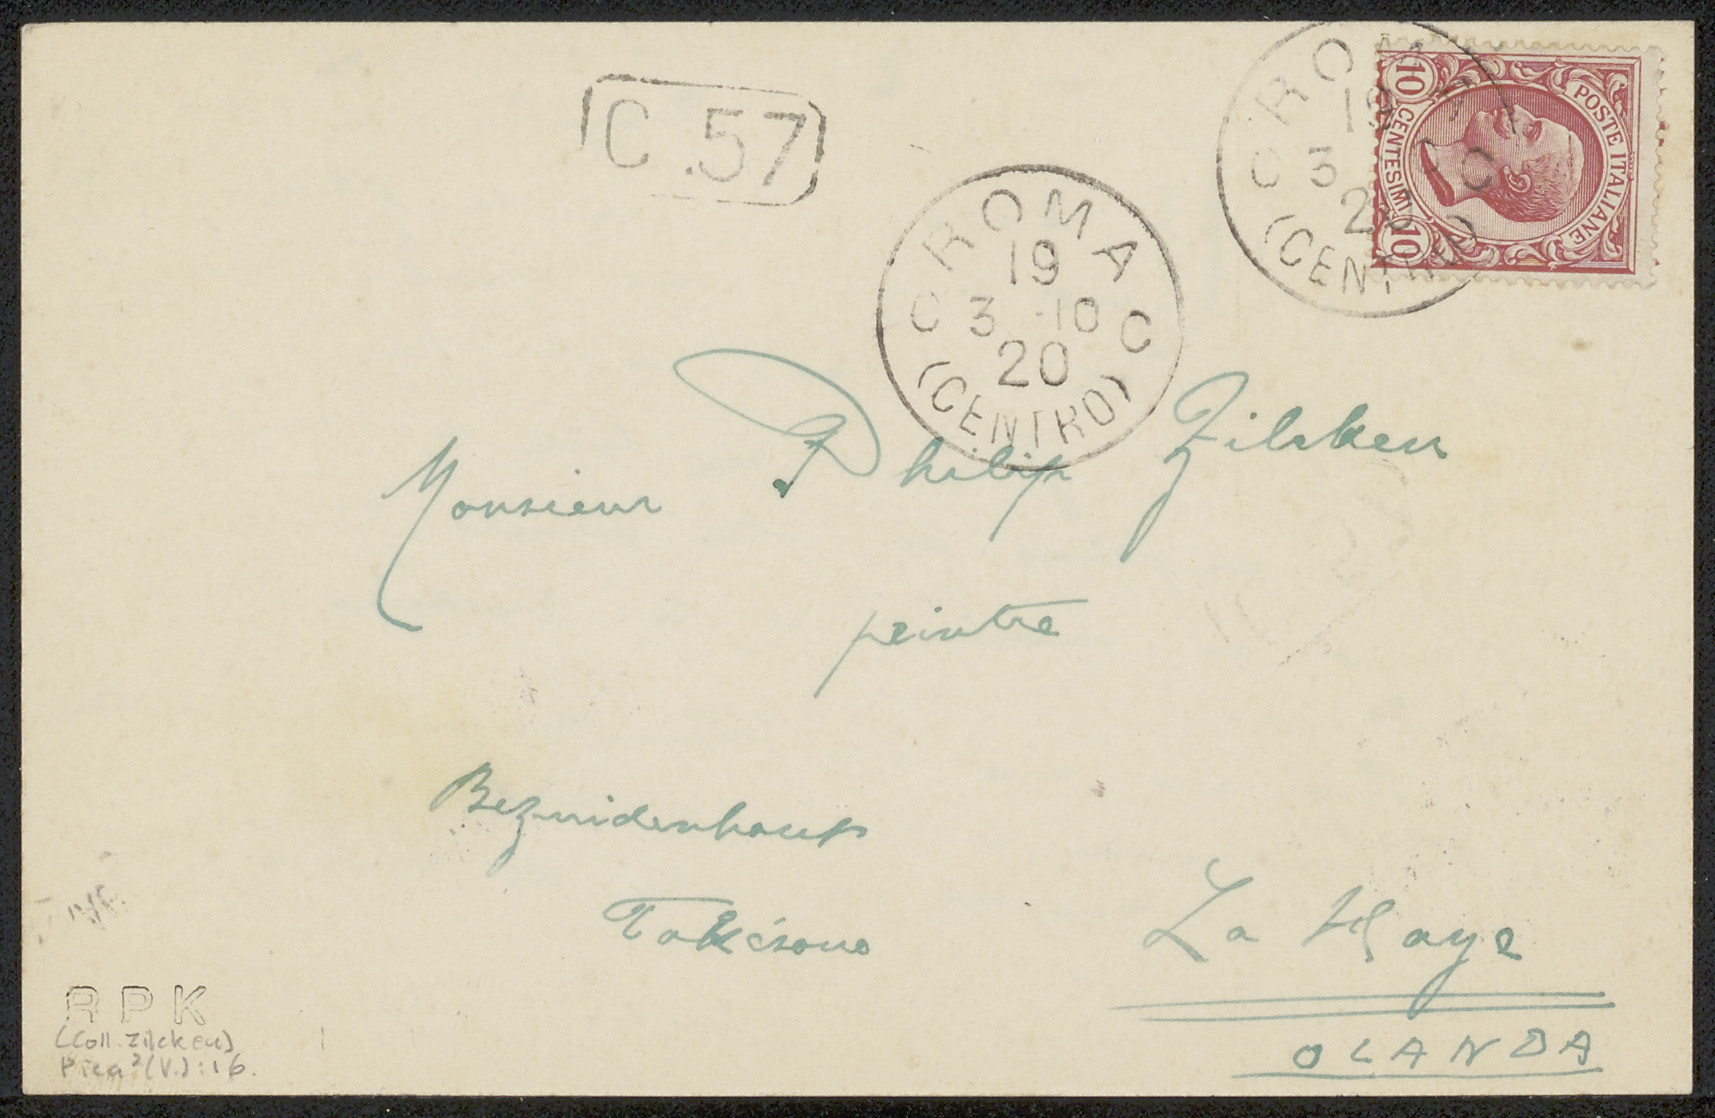 C .57
ROMA
19
C 3 -10 C
20
(CENTRO)
ROMA
19
C 3 10 C
20
(CENTRO)
POSTE ITALIANE
10 CENTESIMI 10
Monsieur Philip Zilcken
peintre
Bezuidenhout
La Haye
OLANDA
RPK
(Coll. Zilcken)
Pica² (V.): 16.